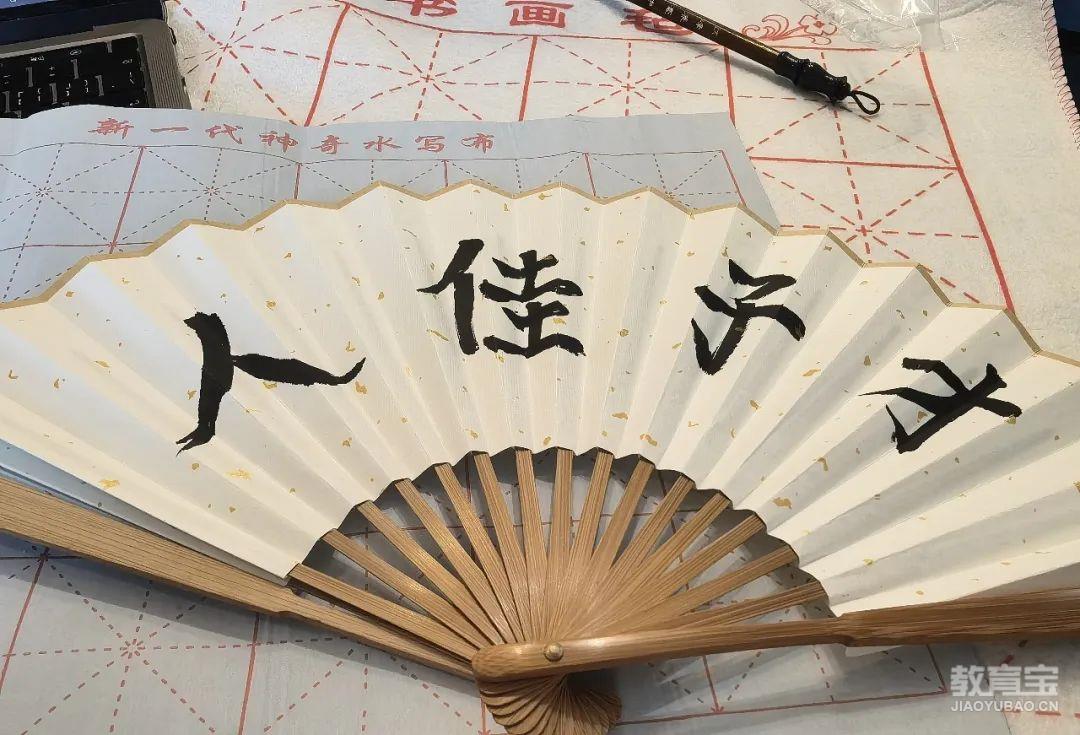 书画
新一代神奇水写布
才子佳人
教育宝
JIAOYUBAO.CN